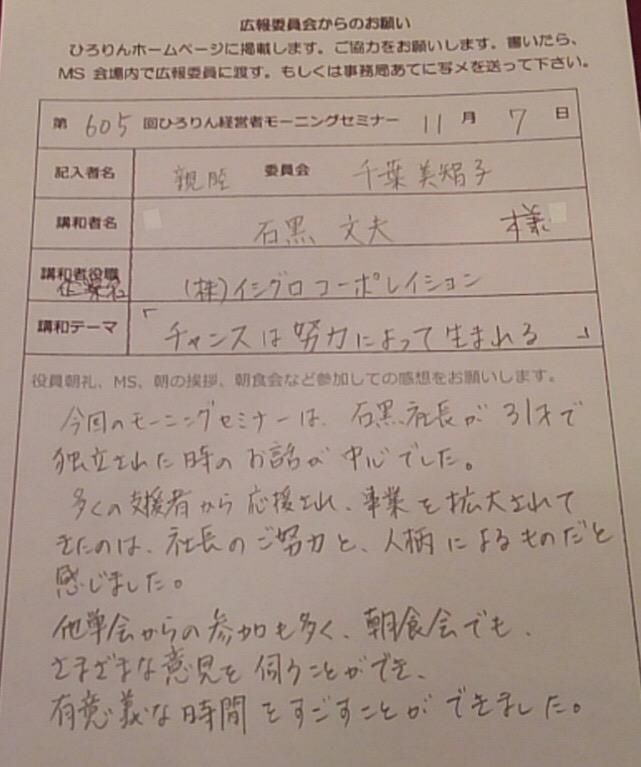 広報委員会からのお願い
ひろりんホームページに掲載します。ご協力をお願いします。書いたら、
MS 会場内で広報委員に渡す。もしくは事務局あてに写メを送って下さい。
第 605 回ひろりん経営者モーニングセミナー 11 月 7 日
記入者名 親睦 委員会 千葉美智子
講和者名 石黒 文夫 様
講和者役職 (株)イシグロコーポレイション
企業名
講和テーマ 「チャンスは努力によって生まれる」
役員朝礼、MS、朝の挨拶、朝食会など参加しての感想をお願いします。
今回のモーニングセミナーは、石黒社長が31才で
独立された時のお話が中心でした。
多くの支援者から応援され、事業を拡大されて
きたのは、社長のご努力と、人柄によるものだと
感じました。
他単会からの参加も多く、朝食会でも、
さまざまな意見を伺うことができ、
有意義な時間をすごすことができました。